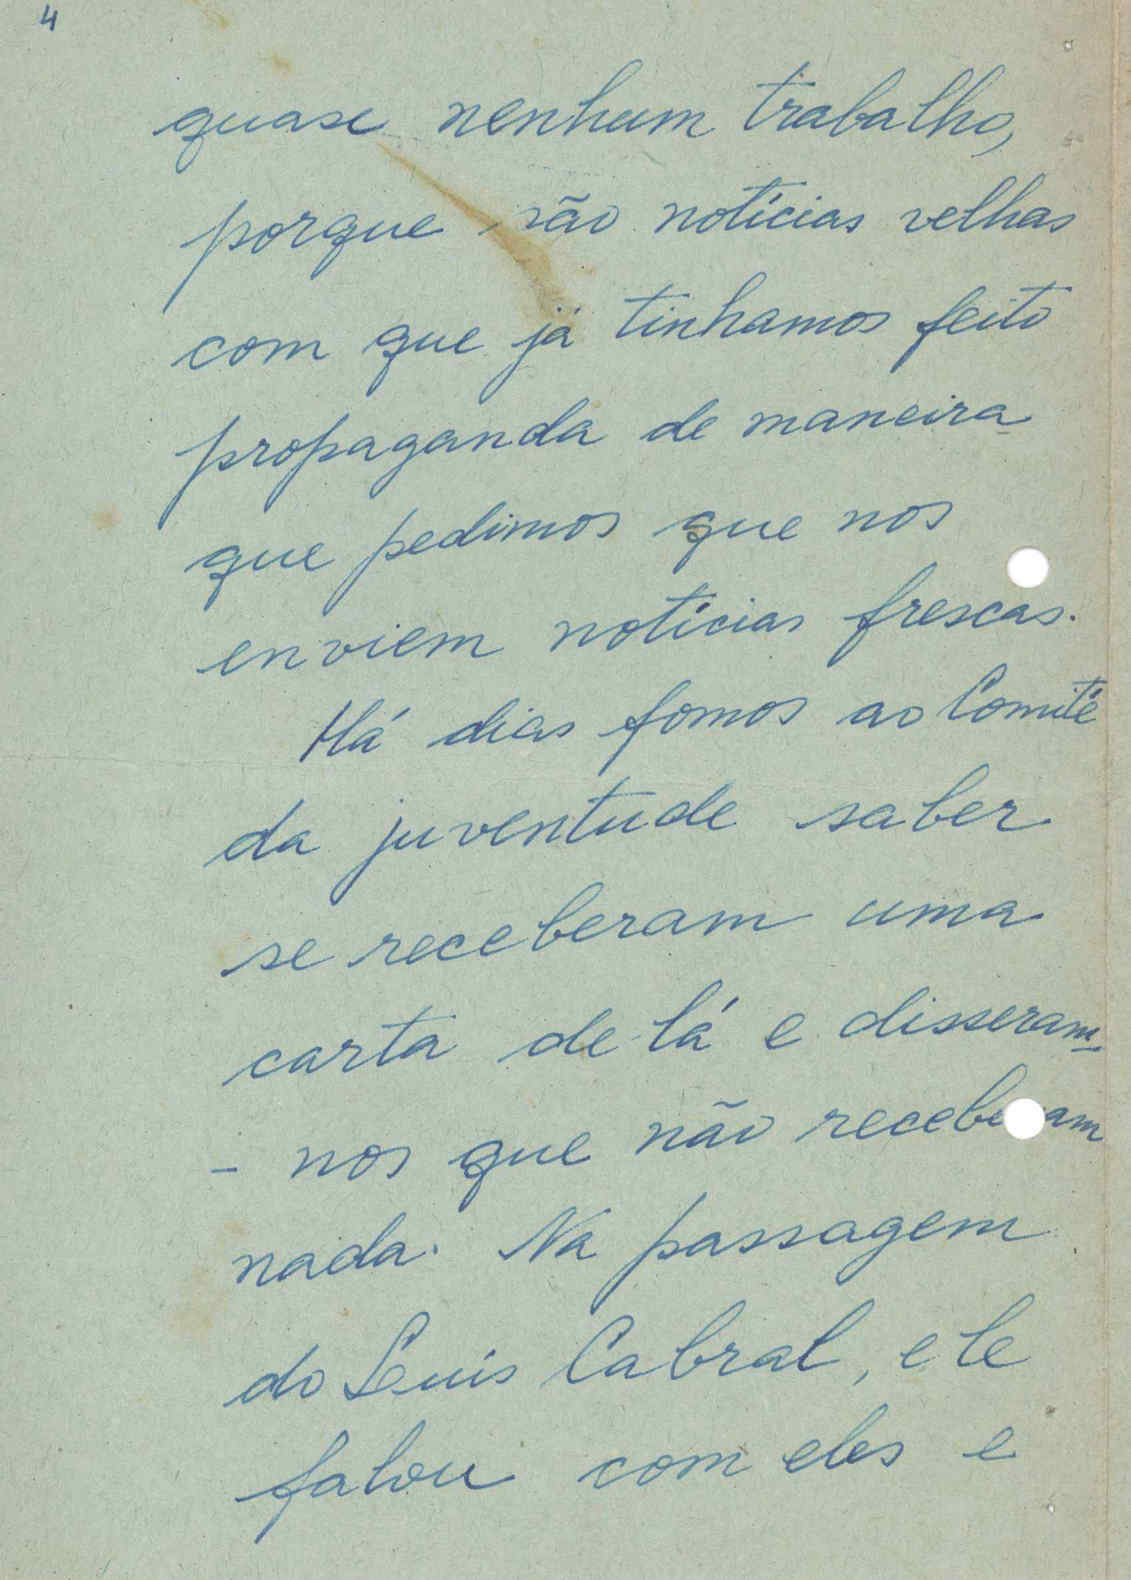 4
quase nenhum trabalho,
porque são notícias velhas
com que já tinhamos feito
propaganda de maneira
que pedimos que nos
enviem notícias frescas.
Há dias fomos ao Comité
da juventude saber
se receberam uma
carta de lá e disseram-
- nos que não receberam
nada. Na passagem
do Luís Cabral, ele
falou com eles e